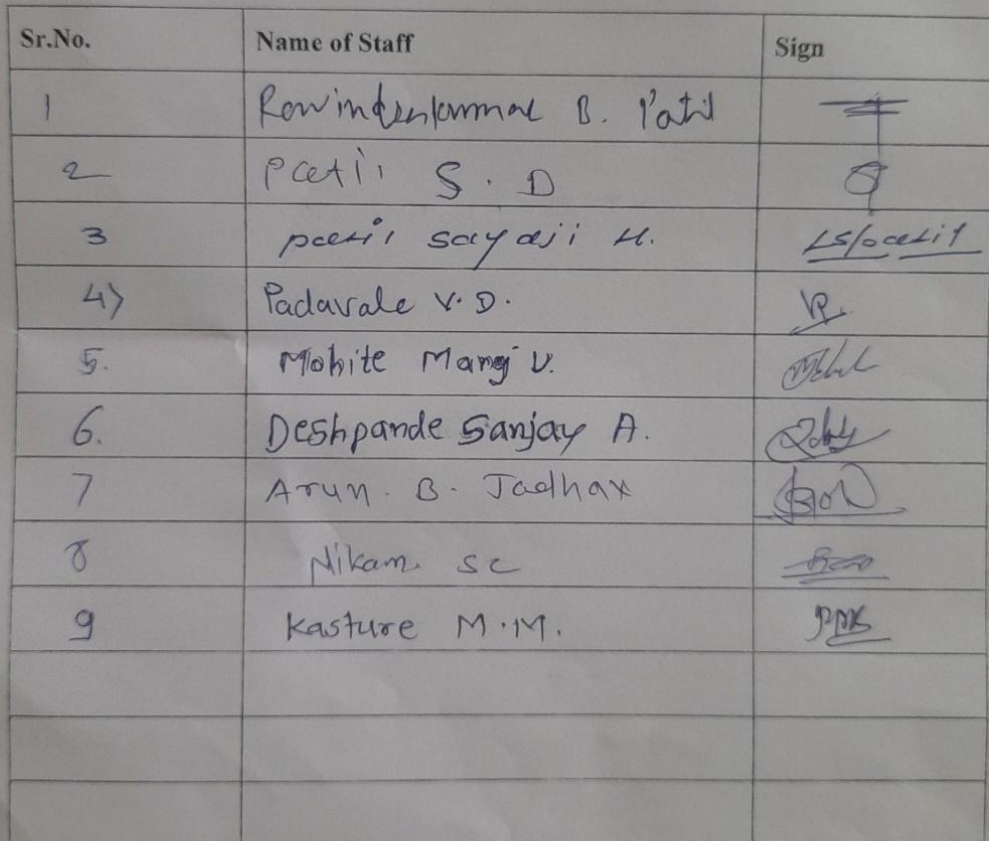 Sr.No. Name of Staff Sign
1 B. Patil
2 Patil S. D
3 Patil Sayaji H.
4) Padavale V. D.
5. Mohite V.
6. Deshpande Sanjay A.
7 Arun. B. Jadhav
8 Nikam. SC
9 Kasture M.M.